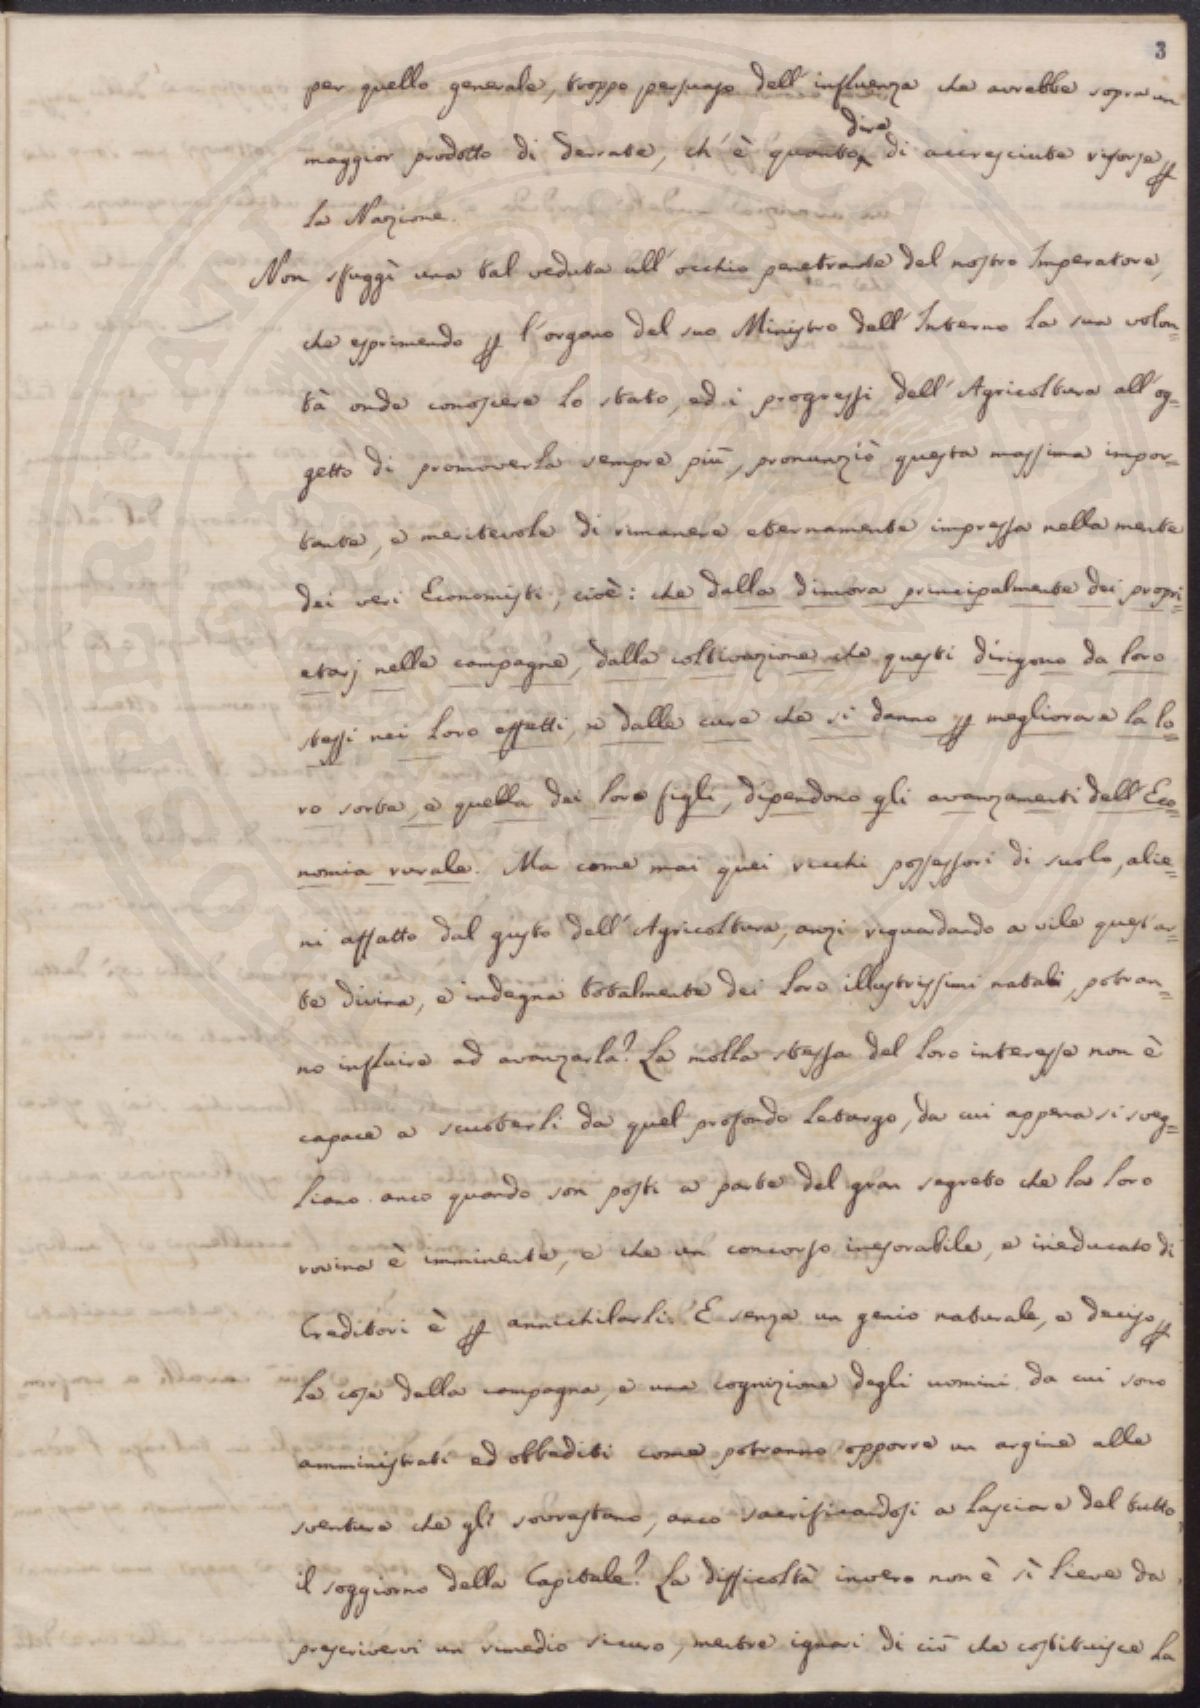 3
per quello generale, troppo persuaso dell'influenza che avrebbe sopra un
dire
maggior prodotto di derrate, ch'è quanto di accresciute risorse p
la Nazione.
Non sfuggì una tal veduta all'occhio penetrante del nostro Imperatore,
che esprimendo p l'organo del suo Ministro dell'Interno la sua volon=
tà onde conoscere lo stato, ed i progressi dell'Agricoltura all'og=
getto di promoverla sempre più, pronunziò questa massima impor=
tante, e meritevole di rimanere eternamente impressa nella mente
dei veri Economisti, cioè: che dalla dimora principalmente dei propri=
etarj nelle campagne, dalla coltivazione che questi dirigono da loro
stessi nei loro effetti, e dalle cure che si danno p megliorare la lo=
ro sorte, e quella dei loro figli, dipendono gli avanzamenti dell'Eco=
nomia rurale. Ma come mai quei ricchi possessori di suolo, alie=
ni affatto dal gusto dell'Agricoltura, anzi riguardando a vile quest'ar=
te divina, e indegna totalmente dei loro illustrissimi natali, potran=
no influire ad avanzarla? La molla stessa del loro interesse non è
capace a scuoterli da quel profondo letargo, da cui appena si sveg=
liano anco quando son posti a parte del gran segreto che la loro
rovina è imminente, e che un concorso inesorabile, e ineducato di
Creditori è p annichilarli. E senza un genio naturale, e deciso p
le cose della campagna, e una cognizione degli uomini da cui sono
amministrati ed obbediti come potranno opporre un argine alle
sventure che gli sovrastano, anco sacrificandosi a lasciare del tutto
il soggiorno della Capitale? La difficoltà invero non è sì lieve da
prescrivervi un rimedio sicuro, mentre ignari di ciò che costituisce la